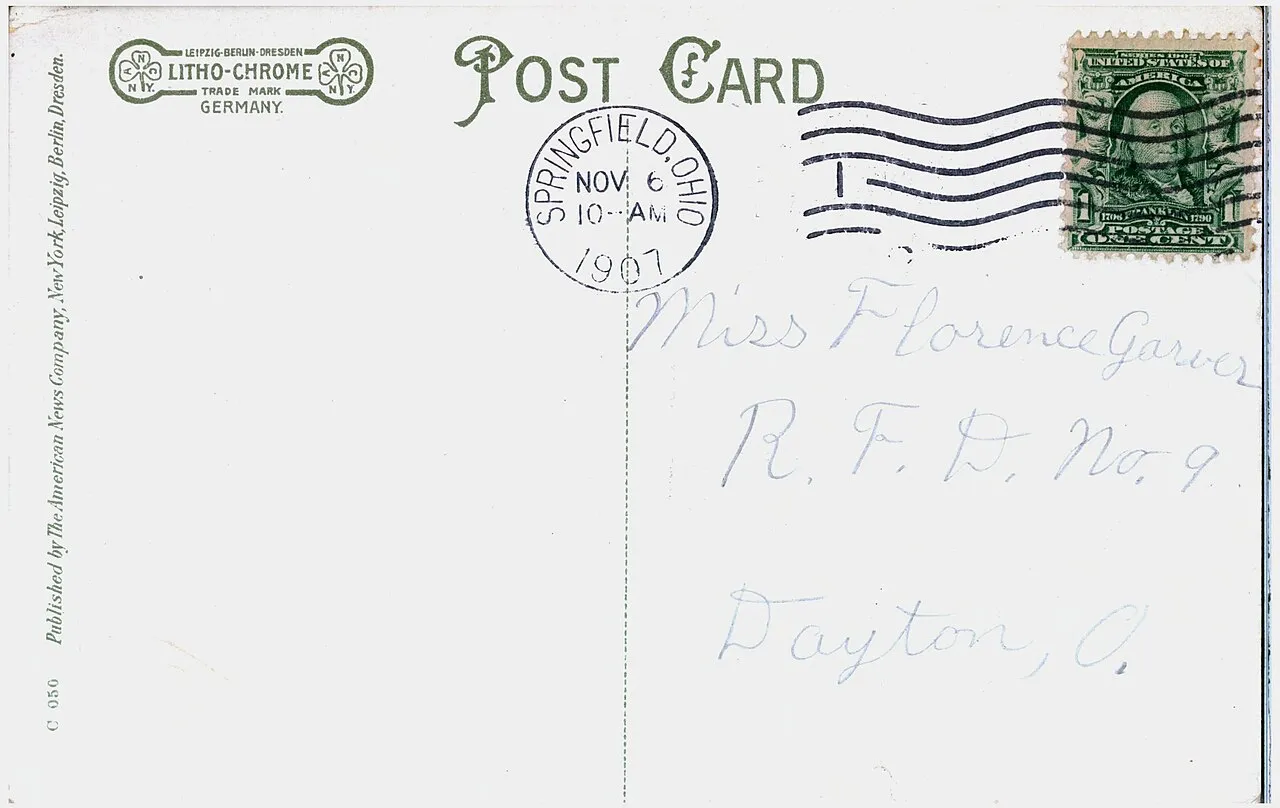 LEIPZIG-BERLIN-DRESDEN
LITHO-CHROME
TRADE MARK
GERMANY.
POST CARD
SPRINGFIELD, OHIO
NOV 6
10--AM
1907
1
SERIES 1902
UNITED STATES OF
AMERICA
1706 FRANKLIN 1790
1 1
POSTAGE
ONE CENT
Miss Florence Garver
R. F. D. No. 9.
Dayton, O.
Published by The American News Company, New York, Leipzig, Berlin, Dresden.
C 050